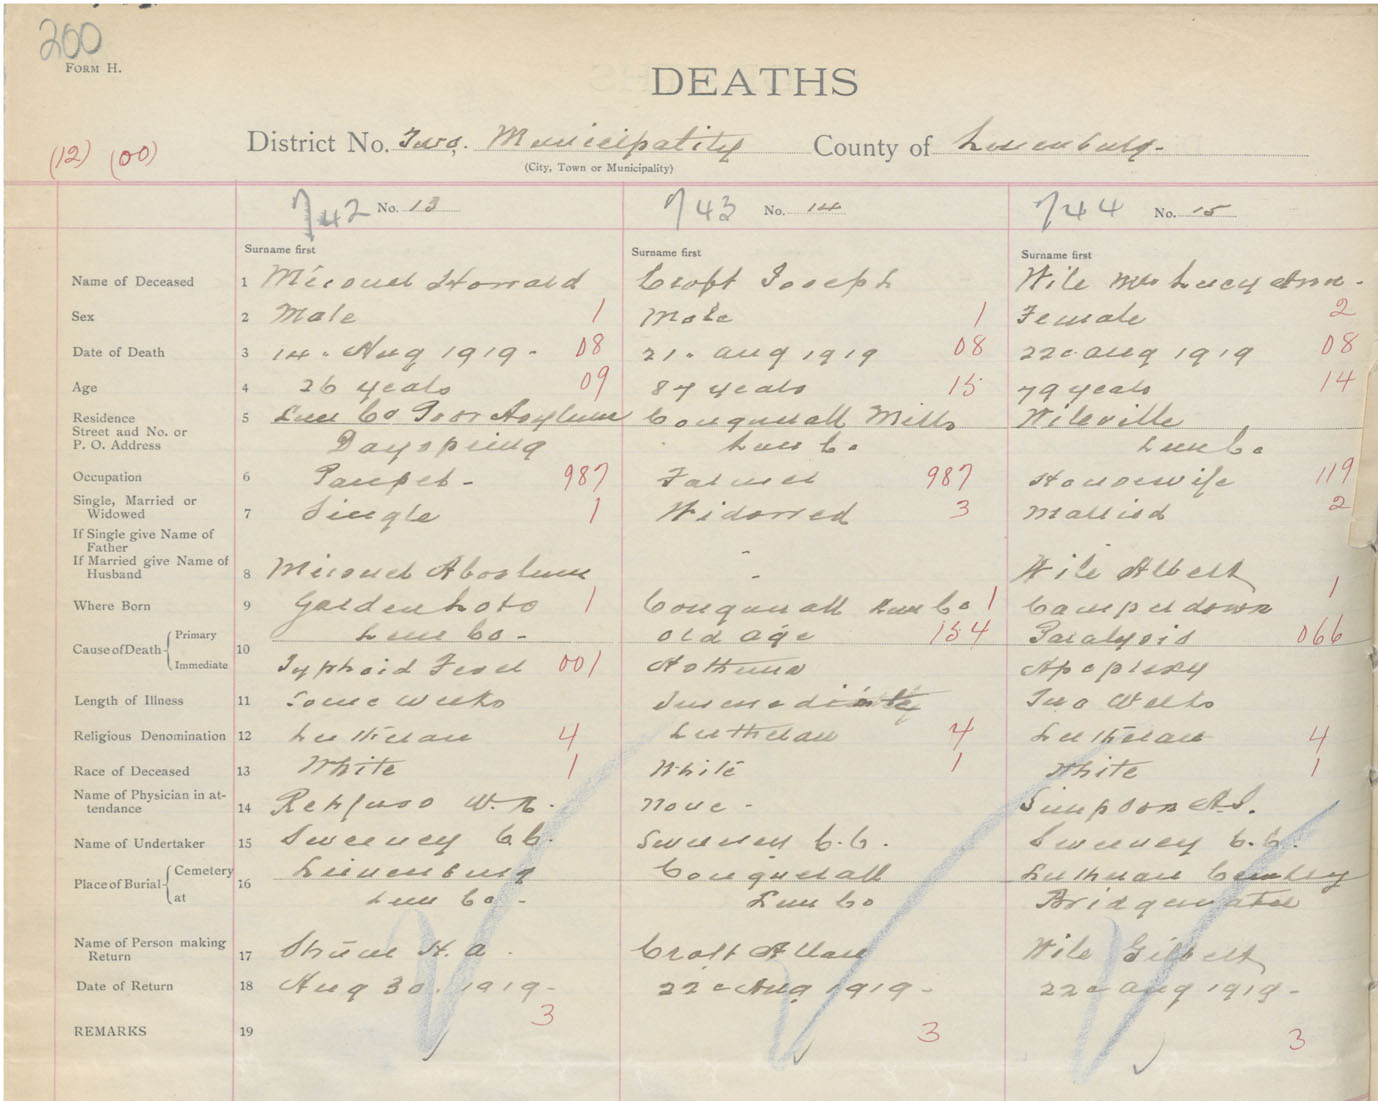 200
FORM H.
DEATHS
(12) (00)
District No. Two. Municipality County of Lunenburg.
(City, Town or Municipality)
742 No. 13
743 No. 14
744 No. 15
Surname first Surname first Surname first
Name of Deceased 1 Howard Croft Joseph Wile Mrs Lucy Ann.
Sex 2 Male 1 Male 1 Female 2
Date of Death 3 14. Aug 1919. 08 21. Aug 1919 08 22d Aug 1919 08
Age 4 26 years 09 87 years 15 79 years 14
Residence 5 Lun Co Poor Asylum Conquerall Mills Wileville
Street and No. or
P. O. Address Dayspring Lun Co Lun Co
Occupation 6 Pauper - 987 Farmer 987 Housewife 119
Single, Married or
Widowed 7 Single 1 Widowed 3 Married 2
If Single give Name of
Father -
If Married give Name of
Husband 8 - Wile Albert
Where Born 9 1 Conquerall Lun Co 1 Camperdown 1
Cause of Death Primary 10 Lun Co - Old age 154 Paralysis 066
Immediate Typhoid Fever 001 Asthma Apoplexy
Length of Illness 11 Some weeks Two Weeks
Religious Denomination 12 Lutheran 4 Lutheran 4 Lutheran 4
Race of Deceased 13 White 1 White 1 White 1
Name of Physician in at-
tendance 14 none - Simpson
Name of Undertaker 15 Sweeney C.C. Sweeney C.C. Sweeney C.C.
Place of Burial Cemetery 16 Lunenburg Conquerall Lutheran Cemetery
at Lun Co - Lun Co Bridgewater
Name of Person making
Return 17 H. A. Croft Allan Wile Gilbert
Date of Return 18 Aug 30. 1919- 22d Aug 1919- 22d Aug 1919-
REMARKS 19 3 3 3